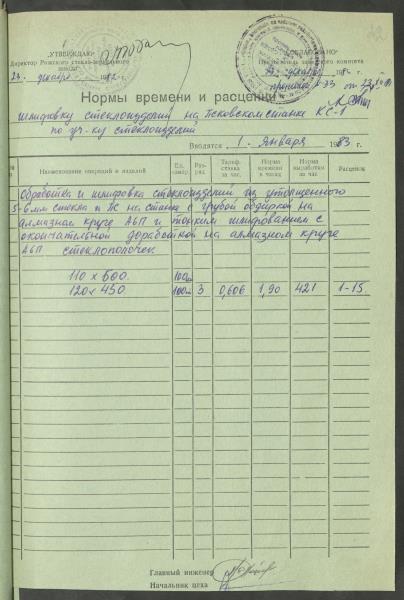 „УТВЕРЖДАЮ"
Директор Рижского стекло-зеркального
завода
23 декабря 1982 г.
Председатель завкомпита
декабря 1982
протокол № 33 от
Нормы времени и расценки
шлифовку стеклоизделий на Псковском станке КС-1
по уч-ку стеклоизделий
Вводятся 1. Января 1983 г.
Наименование операций и изделий
Ед. измер.
Раз-ряд
Тариф. ставка за час.
Норма времени в часах
Норма выработки за час
Расценок
Обработка и шлифовка стеклоизделий из утолщенного
5-6 мм стекла и ПК на станке с грубой обдиркой на
алмазном круге А6П и тонким шлифованием с
окончательной доработкой на алмазном круге
А6П стеклополочек
110 х 600. 100шт
120 х 450 100шт 3 0,606 1,90 421 1-15
Главный инженер
Начальник цеха